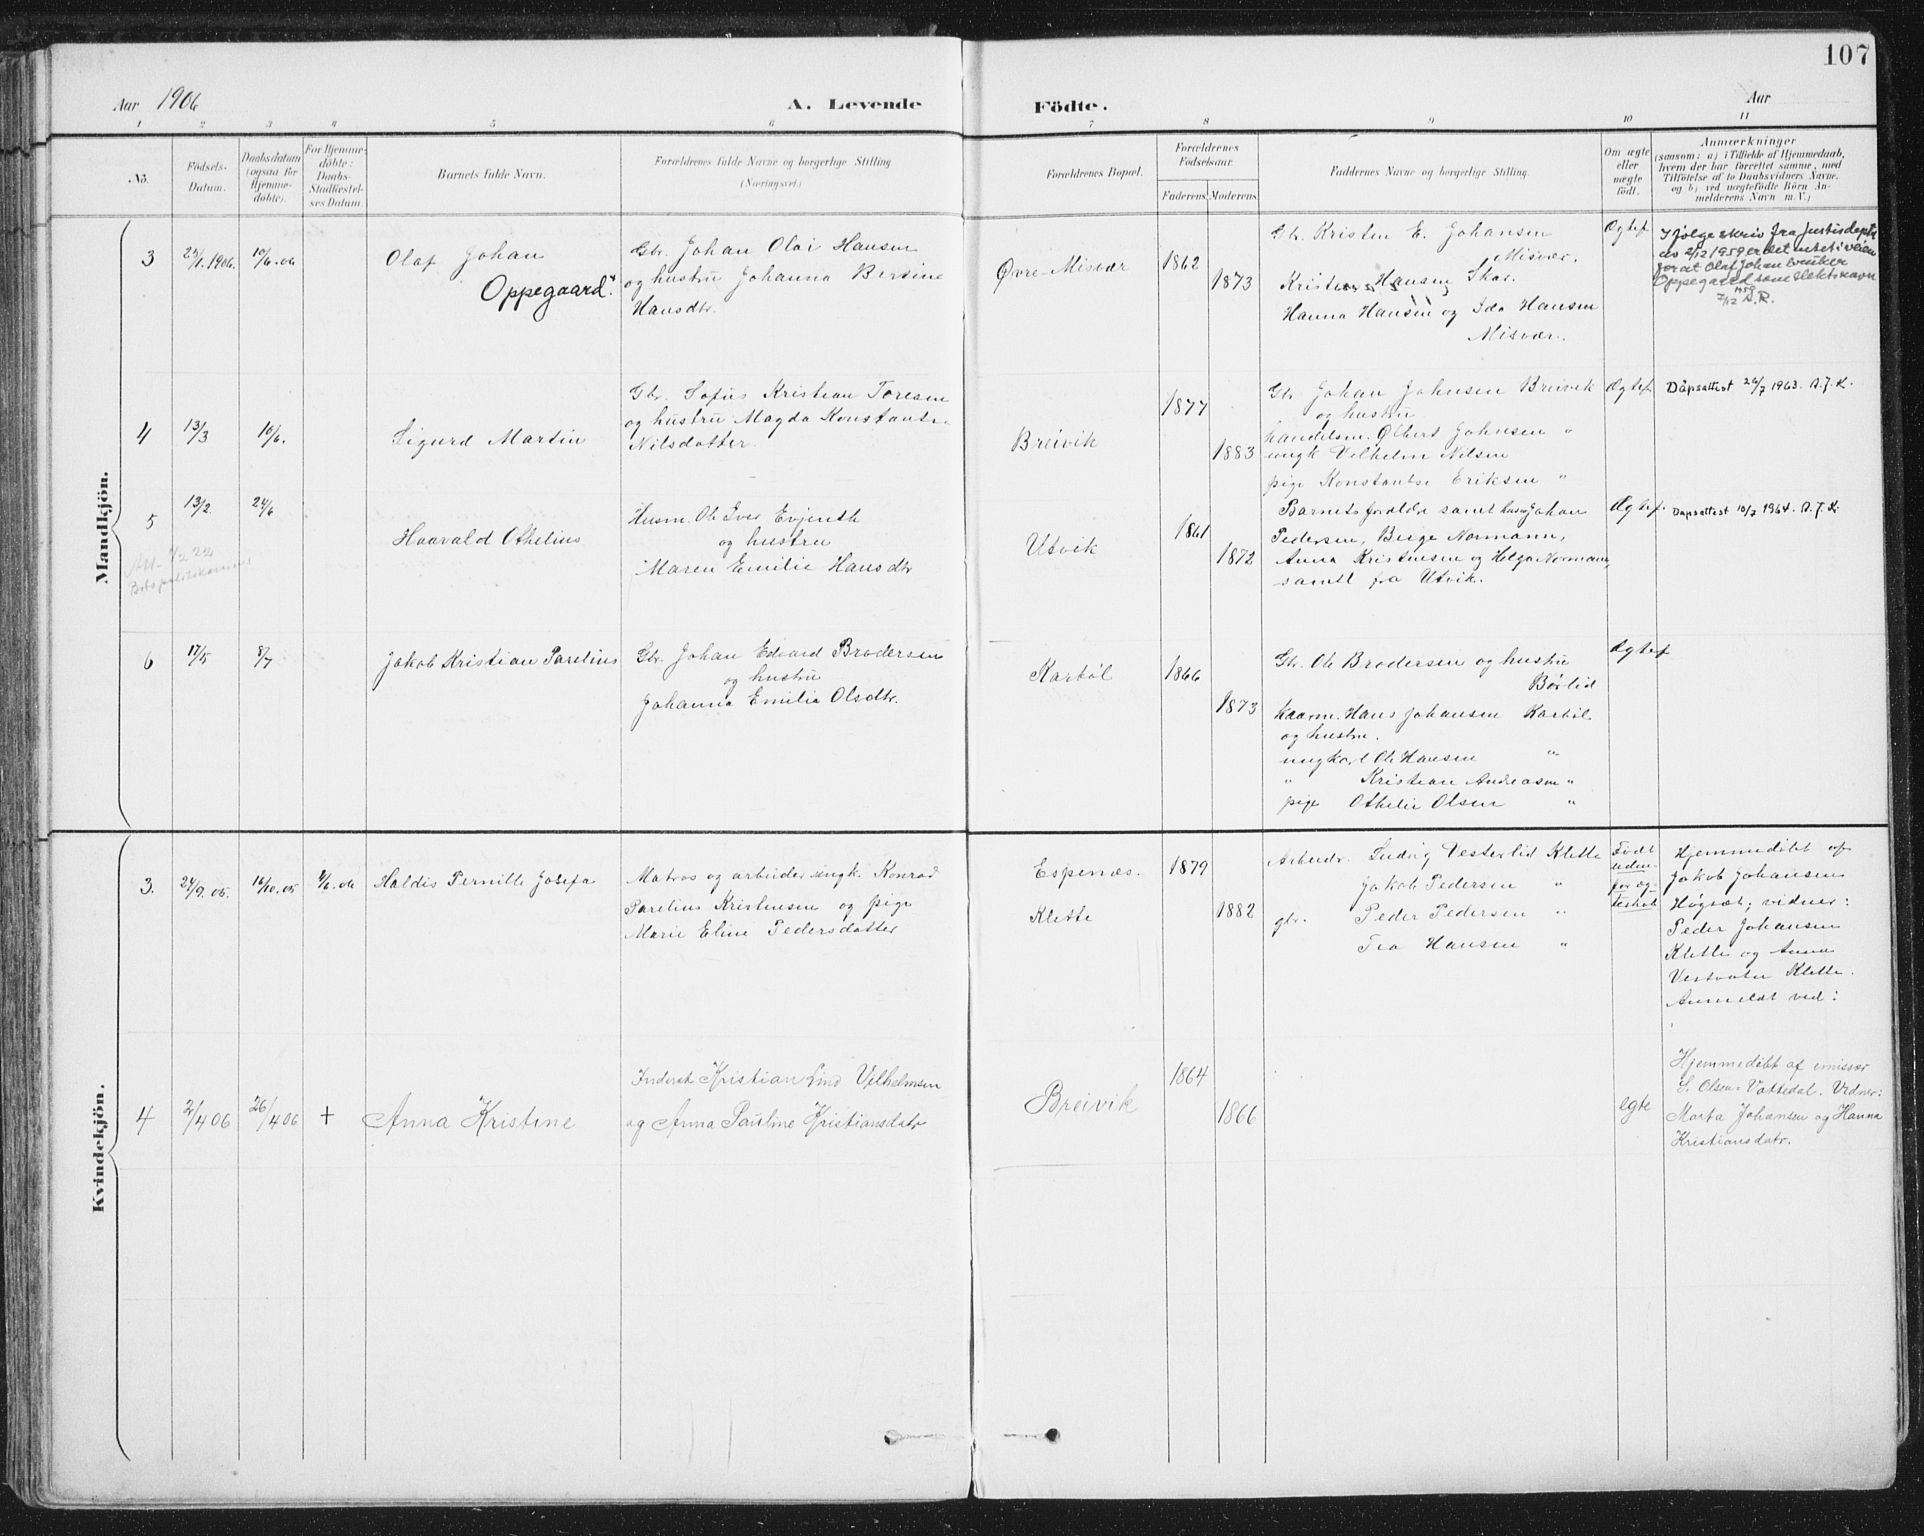 107
Aar 1906
A. Levende
Födte.
Aar
1 2 3 4 5 6 7 8 9 10 11
No.
Födsels-
Datum.
Daabsdatum
(ogsaa for
Hjemme-
döbte).
For Hjemme-
döbte:
Daabs-
Stadfæstel-
ses Datum
Barnets fulde Navn.
Forældrenes fulde Navne og borgerlige Stilling
(Næringsvei.)
Forældrenes Bopæl.
Forældrenes
Födselsaar.
Faderens
Moderens
Faddernes Navne og borgerlige Stilling.
Om ægte
eller
uægte
födt.
Anmærkninger
(saasom: a) i Tilfælde af Hjemmedaab,
hvem der har forrettet samme, med
Tilföielse af to Daabsvidners Navne.
og b) ved uægtefödte Börn An-
melderens Navn m. V.)
Mandkjön.
3
25/1.1906.
10/6.06
Olaf Johan
Oppegaard.
Gbr. Johan Olai Hansen
og hustru Johanna Bersine
Hansdtr.
Øvre-Misvær
1862
1873
Gbr. Kristen E. Johansen
Misvær.
Hansen Skar.
Hanna Hansen og Ida Hansen
Misvær.
Ægtef
Ifølge skriv fra Justisdept
av 2/12 1959 er det intet i veien
for at Olaf Johan bruker
Oppegaard som slektsnavn
7/12 1959 A.R.
4
13/3
10/6.
Sigurd Martin
Gbr. Sofus Kristian Toresen
og hustru Magda Konstanse
Nilsdatter.
Breivik
1877
1883
Gbr Johan Johnsen Breivik
og hustru
handelsm. Albert Johnsen "
ungk Vilhelm Nilsen
pige Konstanse Eriksen "
Ægtef
Dåpsattest 26/7 1963. A.J.K.
5
13/2.
24/6
Haavald Othelius
Husm. Ole Iver Evjenth
og hustru
Maren Emilie Hansdtr
Utvik
1861
1872
Barnets forældre samt husm Johan
Pedersen, Birge Normann,
Anna Kristensen og Helga Normann,
samtl fra Utvik.
Ægtef.
Dåpsattest 10/7 1964. A.J.K.
6
17/5
8/7
Jakob Kristian Parelius
Gbr. Johan Edvard Brodersen
og hustru
Johanna Emilia Olsdtr.
Karbøl
1866
1873
Gbr. Ole Brodersen og hustru
Børlid
kaarm. Hans Johansen Karbøl
og hustru.
Ole Hansen "
" Kristian Andreasen "
pige Othelie Olsen "
Ægtef
Kvindekjön.
3.
24/9.05.
16/10.05
4/6.06
Haldis Pernille Josefa
Matros og arbeider ungk. Konrad
Parelius Kristensen og pige
Marie Eline Pedersdatter
Espenæs.
Klette
1879
1882
Arbeidr. Ludvig Vesterlid Klette
Jakob Pedersen "
gbr. Peder Pedersen "
Tea Hansen "
Født
uden-
for æg-
teskab
Hjemmedøbt af
Jakob Johansen
Høgset; vidner:
Peder Johansen
Klette og Anna
Klette.
Anmeldt ved:
4
2/4 06
26/4 06
+
Anna Kristine
Inderst Kristian Lind Vilhelmsen
og Anna Pauline Kristiansdatr
Breivik
1864
1866
egte
Hjemmedøbt af emissær
S. Olsen-Vattedal. Vidner:
Marta Johansen og Hanna
Kristiansdatr.